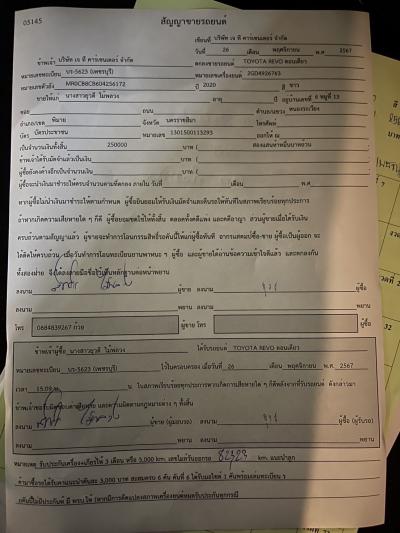 05145
สัญญาขายรถยนต์
เขียนที่ บริษัท เจ ที คาร์เซนเตอร์ จำกัด
วันที่ 26 เดือน พฤศจิกายน พ.ศ 2567
ข้าพเจ้า บริษัท เจ ที คาร์เซนเตอร์ จำกัด ตกลงขายรถยนต์ TOYOTA REVO ตอนเดียว
หมายเลขทะเบียน บร-5623 (เพชรบุรี) หมายเลขเครื่องยนต์ 2GD4926763
หมายเลขตัวถัง MR0CB8CB604256172 ปี 2020 สี ขาว
ขายให้แก่ นางสาวยุวดี ไม้พลวง อายุ ปี อยู่บ้านเลขที่ 6 หมู่ที่ 13
ซอย ถนน ตำบล/แขวง หนองระเวียง
อำเภอ/เขต พิมาย จังหวัด นครราชสีมา โทรศัพท์
บัตร บัตรประชาชน หมายเลข 1301500113293 ออกให้ ณ
เป็นจำนวนเงินทั้งสิ้น 250000 บาท ( สองแสนห้าหมื่นบาทถ้วน
ข้าพเจ้าได้รับมัดจำแล้วเป็นเงิน บาท (
ผู้ซื้อยังคงค้างอีกเป็นจำนวนเงิน บาท (
ผู้ซื้อจะนำเงินมาชำระให้ครบจำนวนตามที่ตกลง ภายใน วันที่ เดือน พ.ศ.
หากผู้ซื้อไม่นำเงินมาชำระให้ตามกำหนด ผู้ซื้อยินยอมให้ริบเงินมัดจำและคืนรถให้ทันทีในสภาพเรียบร้อยทุกประการ
ถ้าหากเกิดความเสียหายใด ๆ ก็ดี ผู้ซื้อยอมชดใช้ให้ทั้งสิ้น ตลอดทั้งคดีแพ่ง และคดีอาญา ส่วนผู้ขายเมื่อได้รับเงิน
ครบถ้วนตามสัญญาแล้ว ผู้ขายจะทำการโอนกรรมสิทธิ์รถคันนี้ให้แก่ผู้ซื้อทันที ผู้ซื้อเป็นผู้ออก
ได้ติดให้ครบถ้วน เมื่อวันทำการโอนทะเบียนยานพาหนะ ๆ ผู้ซื้อ และผู้ขายได้อ่านข้อความเข้าใจดีแล้ว และตกลงกัน
ทั้งสองฝ่าย จึงได้ลงลายมือชื่อไว้เป็นหลักฐานต่อหน้าพยาน
ลงนาม ผู้ขาย ลงนาม ผู้ซื้อ
ลงนาม พยาน ลงนาม พยาน
โทร 0884839267 ก้วย ผู้ขาย โทร ผู้ซื้อ
ข้าพเจ้าผู้ซื้อ นางสาวยุวดี ไม้พลวง ได้รับรถยนต์ TOYOTA REVO ตอนเดียว
หมายเลขทะเบียน บร-5623 (เพชรบุรี) ไว้ในครอบครอง เมื่อวันที่ 26 เดือน พฤศจิกายน พ.ศ. 2567
เวลา 15.09 น. น ในสภาพเรียบร้อยทุกประการหากเกิดการเสียหายใด ๆ ก็ดีหลังจากที่รับรถยนต์ ดังกล่าวมา
ข้าพเจ้าขอรับผิดชอบ และความผิดตามกฎหมายต่าง ๆ ทั้งสิ้น
ลงนาม ผู้ขาย (ผู้มอบรถ) ลงนาม ผู้ซื้อ (ผู้รับรถ)
ลงนาม พยาน ลงนาม พยาน
หมายเหตุ รับประกันเครื่อง+เกียร์ให้ 3 เดือน หรือ 3,000 km. เลขไมล์วันออกรถ km. แนะนำลูก
ค้ามาซื้อรถได้รับค่าแนะนำคันละ 3,000 บาท สะสมครบ 6 คัน คันที่ 6 ได้รับ 1 คันพร้อมเล่มทะเบียน